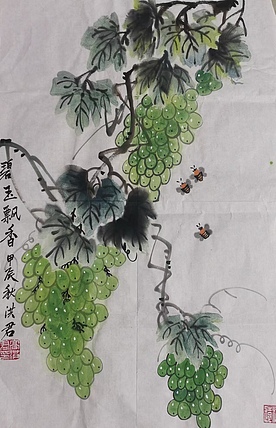 碧玉飘香 甲辰秋洪君